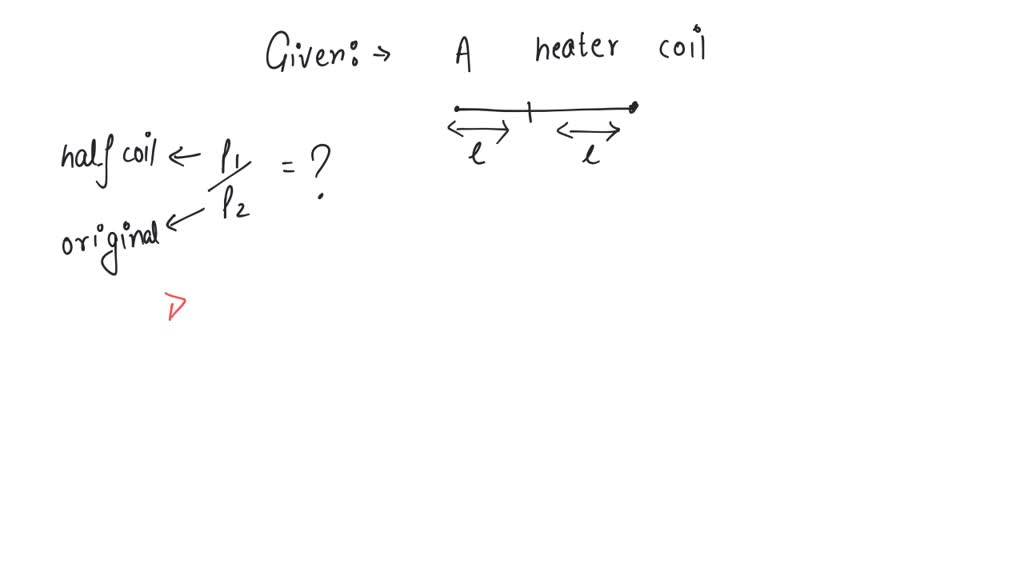 Given: → A heater coil
l l
half coil ← P1/P2 = ?
original ←